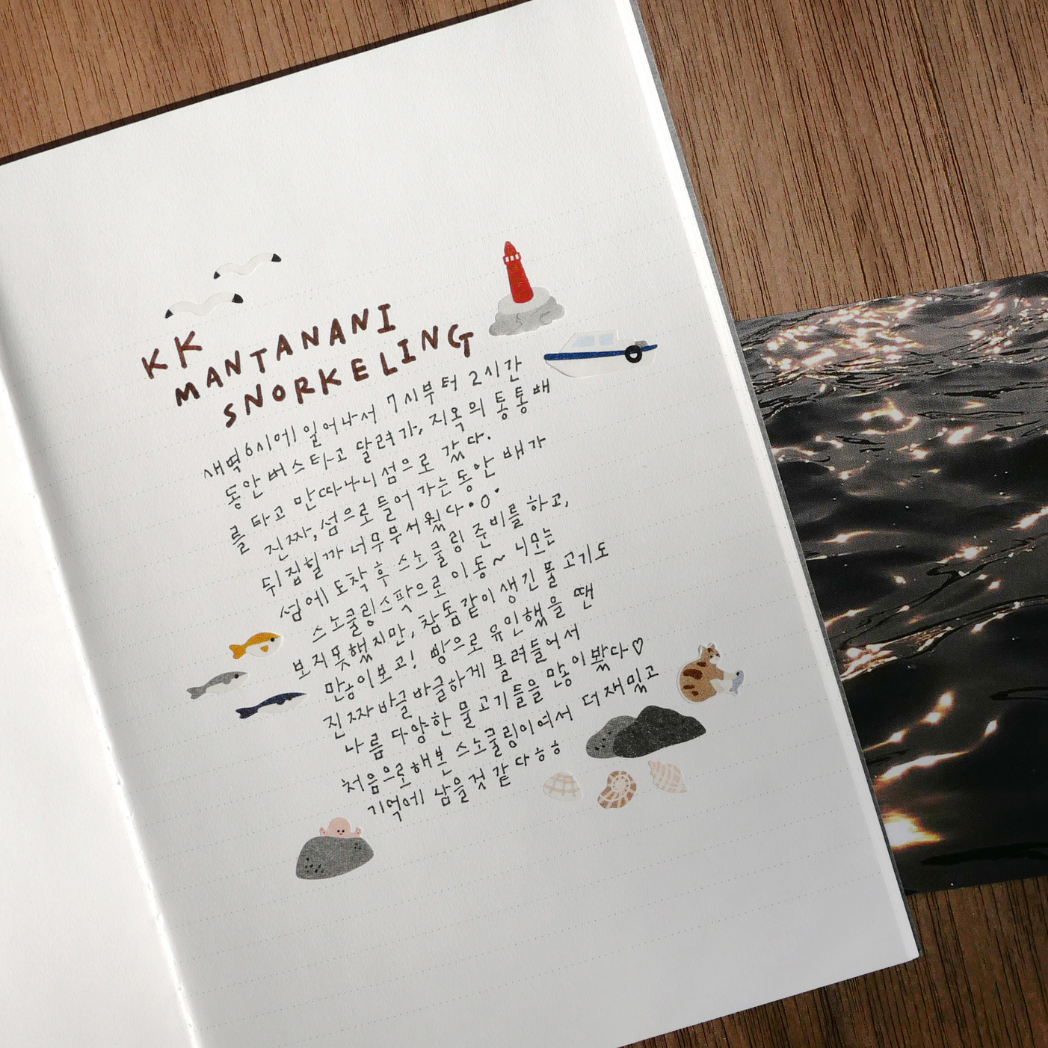 KK
MANTANANI
SNORKELING
새벽 6시에 일어나서 7시부터 2시간
동안 버스타고 달려가, 지옥의 통통배
를 타고 만따나니섬으로 갔다.
진짜, 섬으로 들어가는동안 배가
뒤집힐까 너무무서웠다•0•
섬에 도착 후 스노쿨링 준비를 하고,
스노쿨링스팟으로 이동~ 니모는
보지못했지만, 참돔같이 생긴 물고기도
만숭이보고! 빵으로 유인했을 땐
진짜 바글바글하게 몰려들어서
나름 다양한 물고기들을 많이 봤다♡
처음으로해본 스노쿨링이여서 더 재밌고
기억에 남을것 같다ㅎㅎ